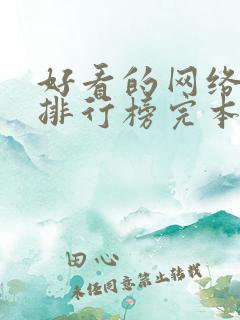 好看的网络
排行榜完本
田心
未经同意禁止转载